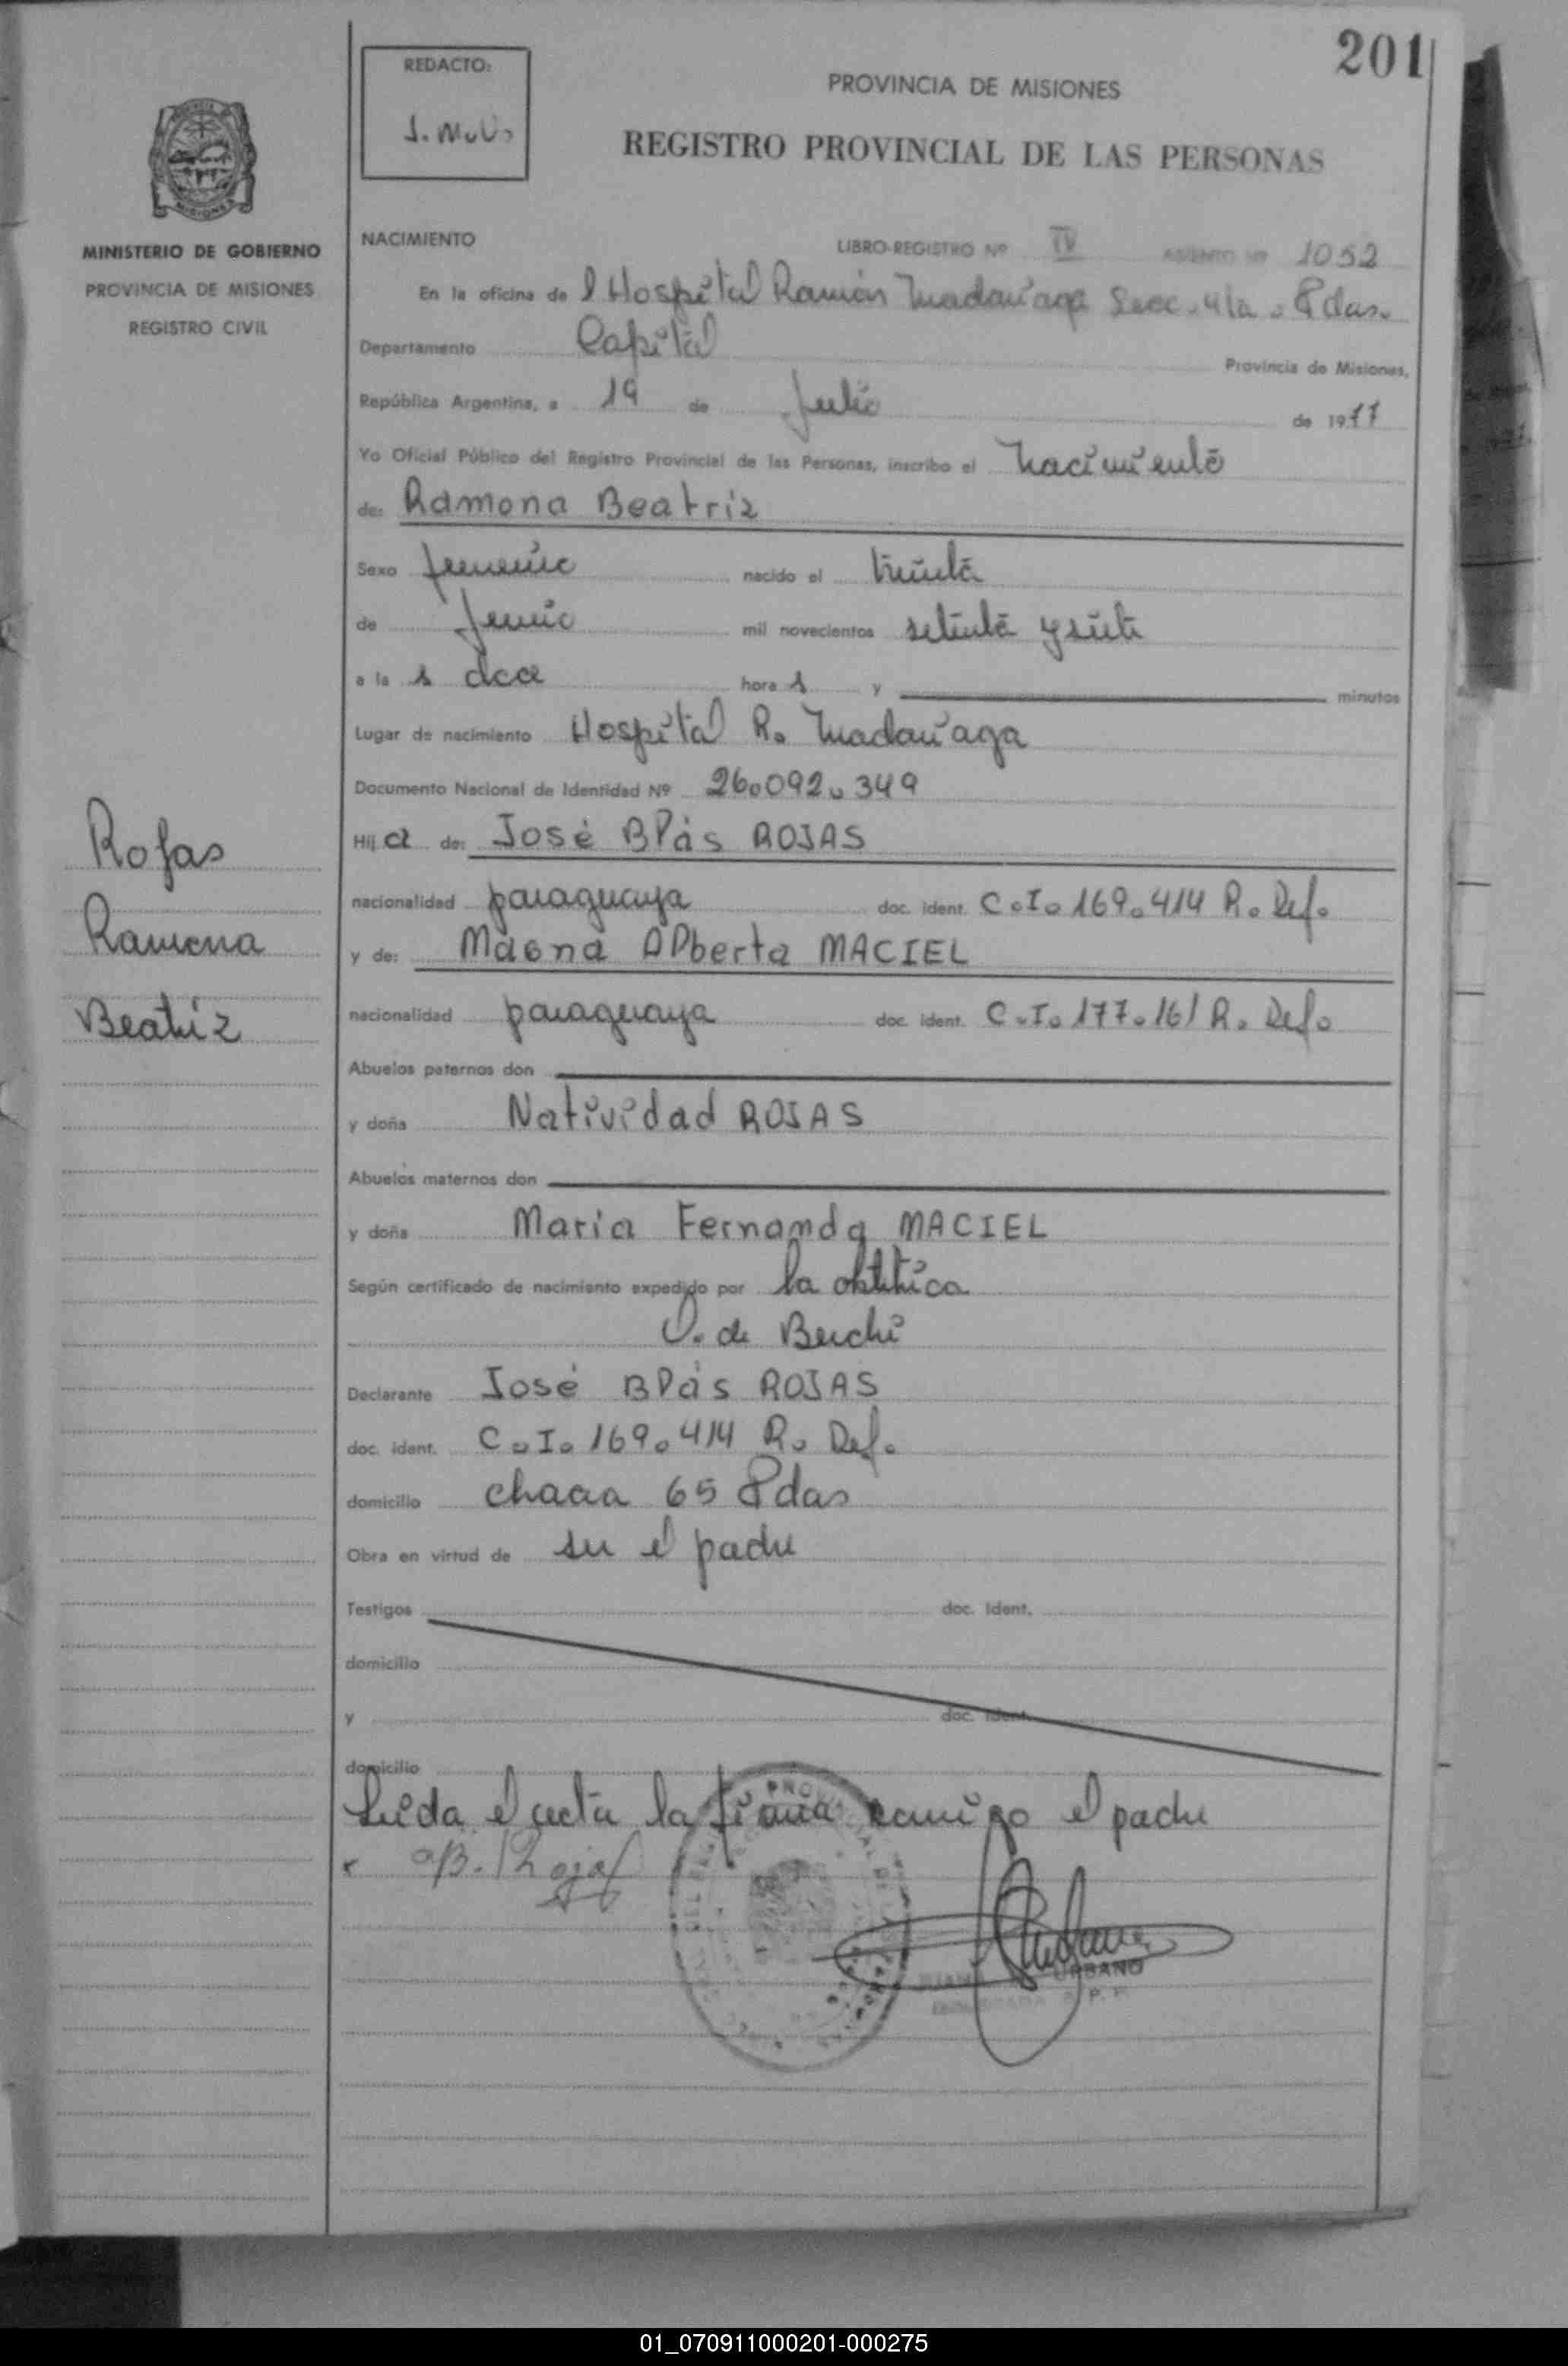 201
REDACTO:
PROVINCIA DE MISIONES
REGISTRO PROVINCIAL DE LAS PERSONAS
MINISTERIO DE GOBIERNO
PROVINCIA DE MISIONES
REGISTRO CIVIL
NACIMIENTO LIBRO-REGISTRO Nº IV ASIENTO Nº 1052
En la oficina de l Hospital Ramón Madariaga Secc. 4ta. Pdas.
Departamento Capital Provincia de Misiones,
República Argentina, a 19 de Julio de 1977
Yo Oficial Público del Registro Provincial de las Personas, inscribo el nacimiento
de: Ramona Beatriz
Sexo femenino nacido el treinta
de Junio mil novecientos setenta y siete
a la s doce hora s y minutos
Lugar de nacimiento Hospital R. Madariaga
Documento Nacional de Identidad Nº 26.092.349
Hij a de: José Blás ROJAS
nacionalidad paraguaya doc. ident. C.I. 169.414 R. Def.
y de: Magna Alberta MACIEL
nacionalidad paraguaya doc. ident. C.I. 177.161 R. Def.
Abuelos paternos don
y doña Natividad ROJAS
Abuelos maternos don
y doña Maria Fernanda MACIEL
Según certificado de nacimiento expedido por la obstetrica
de
Declarante José Blás ROJAS
doc. ident. C.I. 169.414 R. Def.
domicilio chacra 65 Pdas
Obra en virtud de ser el padre
Testigos doc. Ident.
domicilio
y doc. Ident.
domicilio
Leida el acta la firma conmigo el padre
B. Rojas
URBANO
Rojas
Ramona
Beatriz
01_070911000201-000275